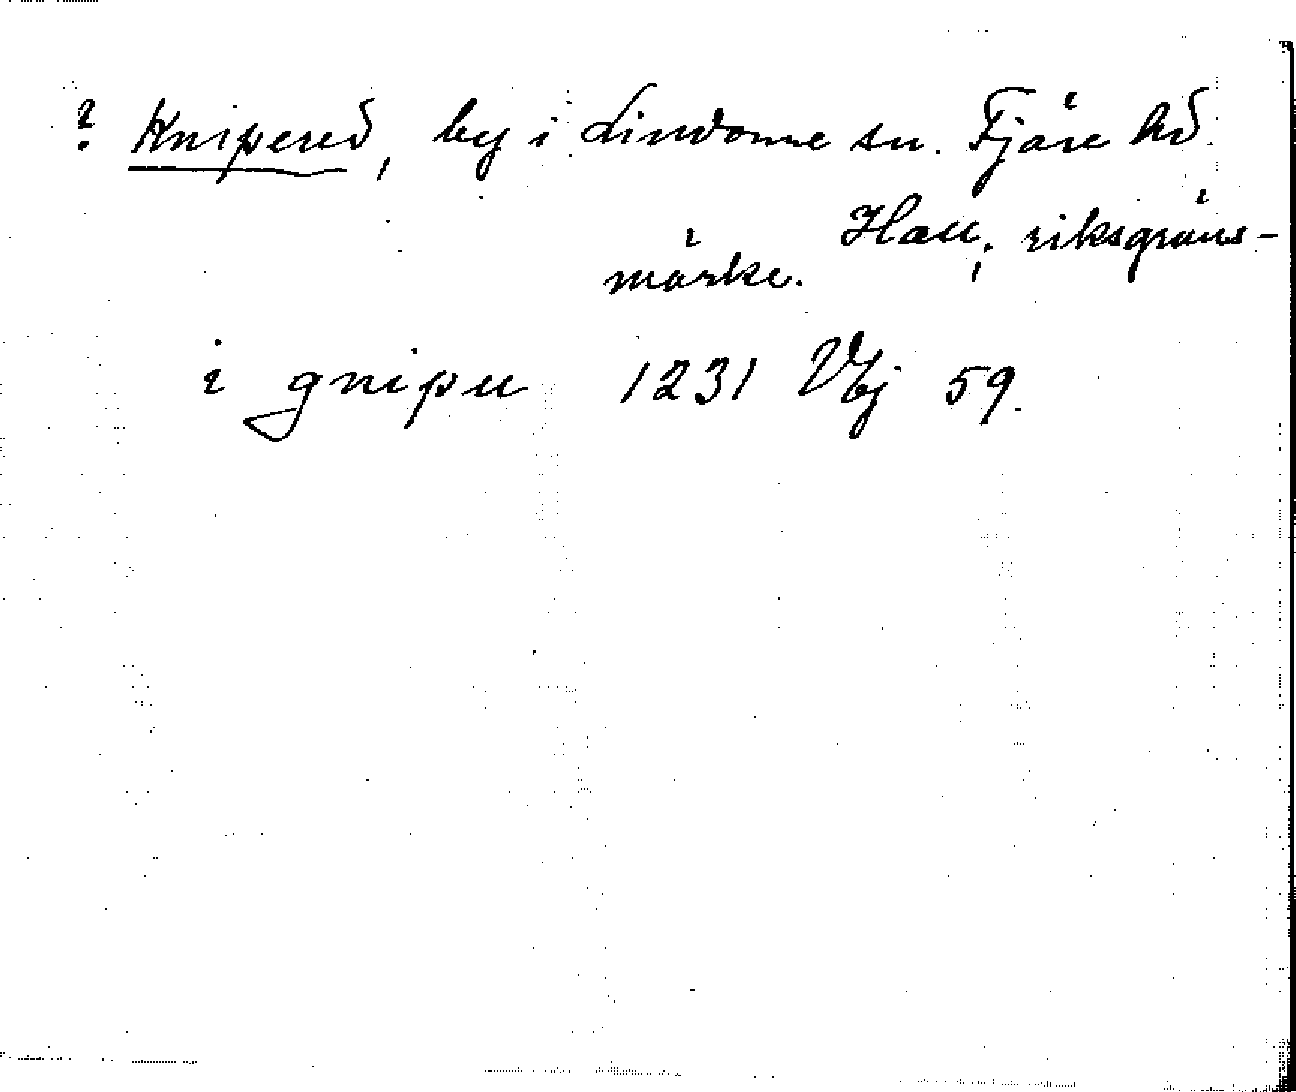 ? Knipered, by i Lindome sn. Fjäre hd.
Hall; riksgräns-
märke.
i gnipu 1231 Vbj 59.